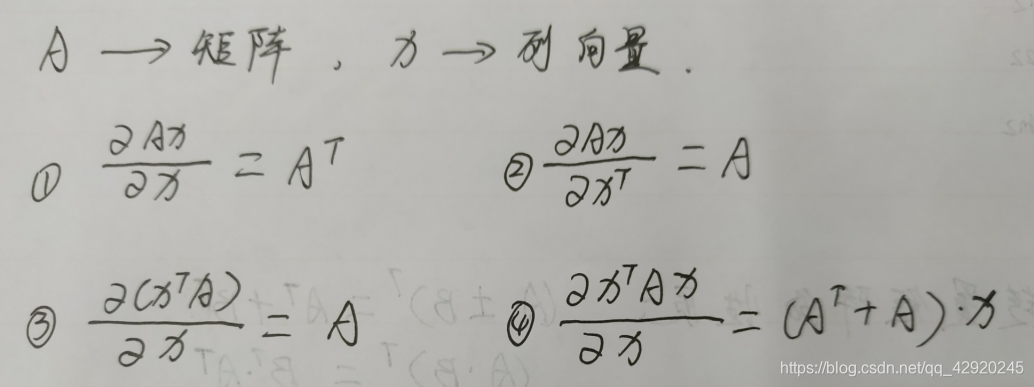 A → 矩阵 , x → 列向量.
① ∂Ax/∂x = Aᵀ ② ∂Ax/∂xᵀ = A
③ ∂(xᵀA)/∂x = A ④ ∂xᵀAx/∂x = (Aᵀ + A)·x
https://blog.csdn.net/qq_42920245